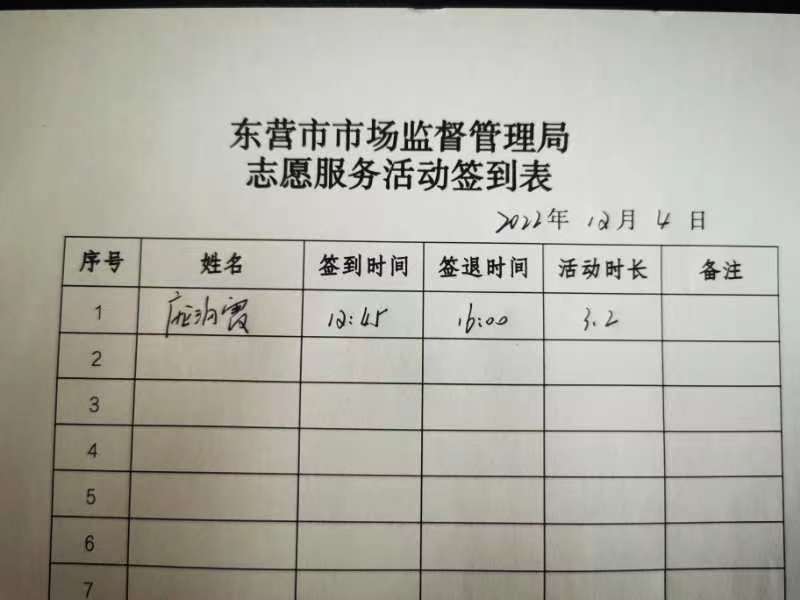 东营市市场监督管理局
志愿服务活动签到表
2022年 12月 4 日
序号 姓名 签到时间 签退时间 活动时长 备注
1 霞 12:45 16:00 3.2
2
3
4
5
6
7